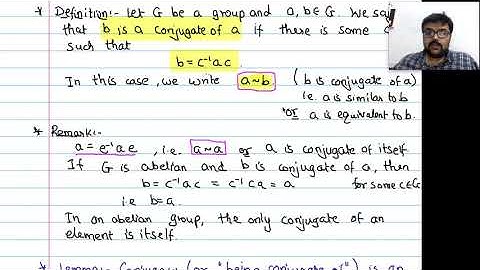 * Definition:- Let G be a group and a, b ∈ G. We say
that b is a conjugate of a if there is some c
such that
b = c⁻¹ a c.
In this case, we write a ~ b. ( b is conjugate of a)
i.e. a is similar to b
"or a is equivalent to b.
* Remark:-
a = e⁻¹ a e, i.e. a ~ a or a is conjugate of itself
If G is abelian and b is conjugate of a, then
b = c⁻¹ a c = c⁻¹ c a = a for some c ∈ G
i.e b = a.
In an abelian group, the only conjugate of an
element is itself.
* Lemma:- Conjugacy (or "being conjugate of") is an